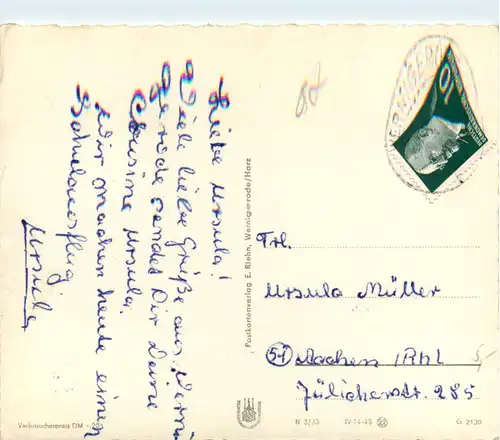 Liebe Ursula!
Viele liebe Grüße aus Werni-
gerode sendet Dir Deine
Cousine Ursula.
Wir machen heute einen
Schulausflug
Ursula
Postkartenverlag E. Riehn, Wernigerode/Harz
Frl.
Ursula Müller
51 Aachen /Rhl
Jülicherstr. 285
Verbraucherpreis DM -.20
N 3/63 IV-14-45 G 2130